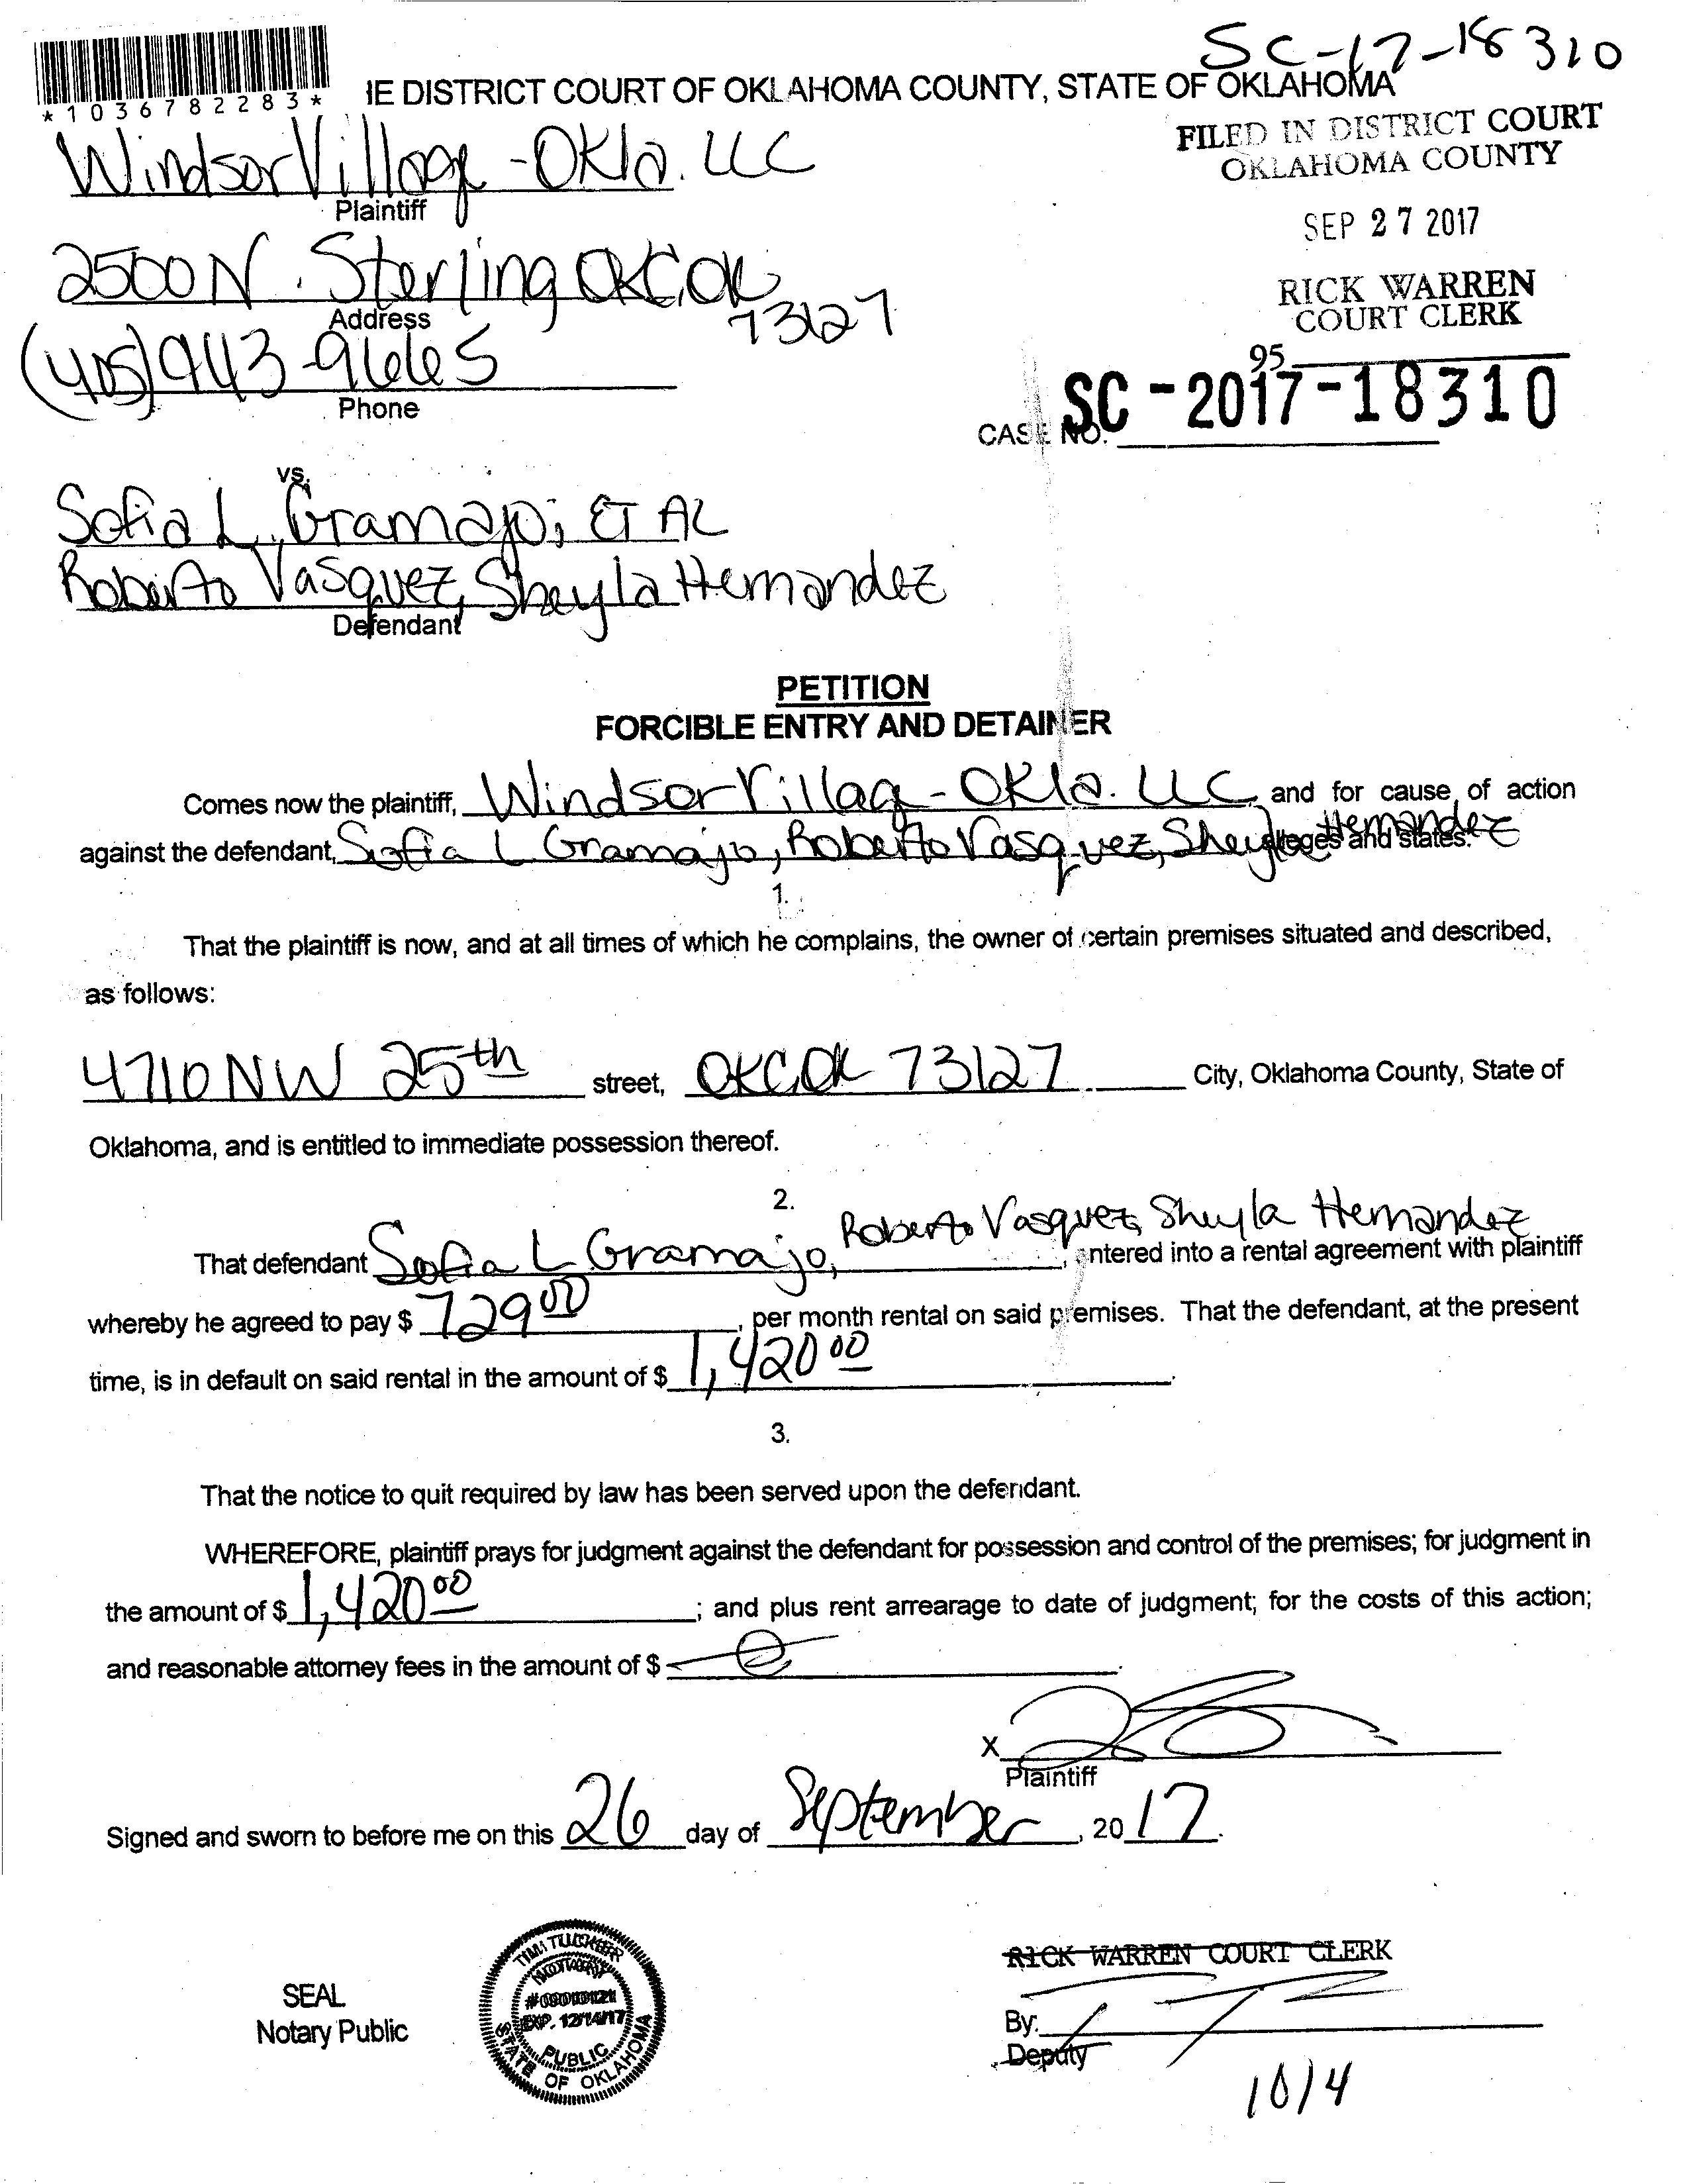 SC-17-18310
*1036782283*
IE DISTRICT COURT OF OKLAHOMA COUNTY, STATE OF OKLAHOMA
FILED IN DISTRICT COURT
OKLAHOMA COUNTY
Windsor Village -Okla. LLC
Plaintiff
SEP 27 2017
2500 N. Sterling OKC, OK
73127
Address
RICK WARREN
COURT CLERK
(405) 943-9665
Phone
95
CASE NO. SC-2017-18310
vs.
Sofia L. Gramajo; ET AL
Roberto Vasquez, Sheyla Hernandez
Defendant
PETITION
FORCIBLE ENTRY AND DETAINER
Comes now the plaintiff, Windsor Village-Okla. LLC, and for cause of action
against the defendant, Sofia L Gramajo, Roberto Vasquez, Sheyla Hernandez alleges and states:
1.
That the plaintiff is now, and at all times of which he complains, the owner of certain premises situated and described,
as follows:
4710 NW 25th street, OKC, OK 73127 City, Oklahoma County, State of
Oklahoma, and is entitled to immediate possession thereof.
2.
That defendant Sofia L Gramajo, Roberto Vasquez, Sheyla Hernandez, entered into a rental agreement with plaintiff
whereby he agreed to pay $ 729.00, per month rental on said premises. That the defendant, at the present
time, is in default on said rental in the amount of $ 1,420.00.
3.
That the notice to quit required by law has been served upon the defendant.
WHEREFORE, plaintiff prays for judgment against the defendant for possession and control of the premises; for judgment in
the amount of $ 1,420.00; and plus rent arrearage to date of judgment; for the costs of this action;
and reasonable attorney fees in the amount of $
X
Plaintiff
Signed and sworn to before me on this 26 day of September, 2017.
SEAL
Notary Public
TIM TUCKER
NOTARY
EXP. 12/14/17
PUBLIC
STATE OF OKLAHOMA
RICK WARREN COURT CLERK
By:
Deputy
10/4